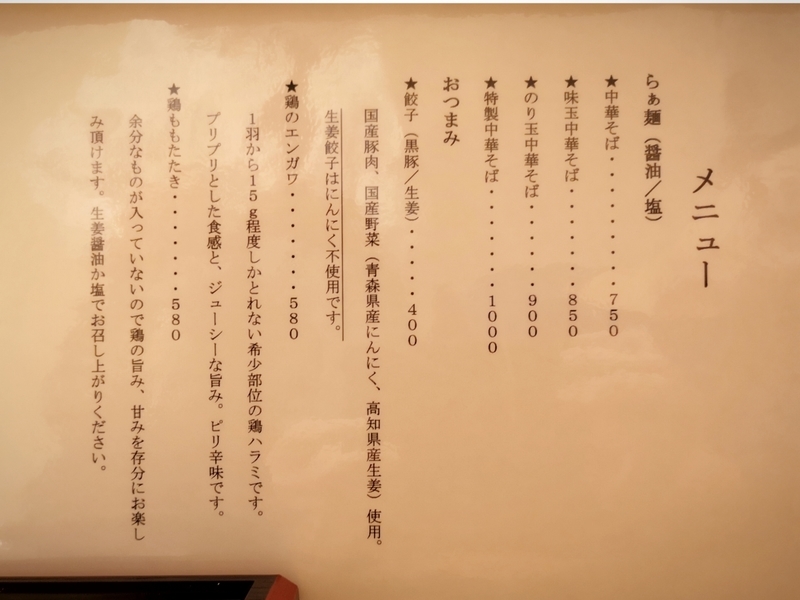 メニュー
らぁ麺（醤油／塩）
★中華そば・・・・・・・・・７５０
★味玉中華そば・・・・・・・８５０
★のり玉中華そば・・・・・・９００
★特製中華そば・・・・・・・１０００
おつまみ
★餃子（黒豚／生姜）・・・・・４００
国産豚肉、国産野菜（青森県産にんにく、高知県産生姜）使用。
生姜餃子はにんにく不使用です。
★鶏のエンガワ・・・・・・・５８０
１羽から１５ｇ程度しかとれない希少部位の鶏ハラミです。
プリプリとした食感と、ジューシーな旨み。ピリ辛味です。
★鶏ももたたき・・・・・・・５８０
余分なものが入っていないので鶏の旨み、甘みを存分にお楽し
み頂けます。生姜醤油か塩でお召し上がりください。